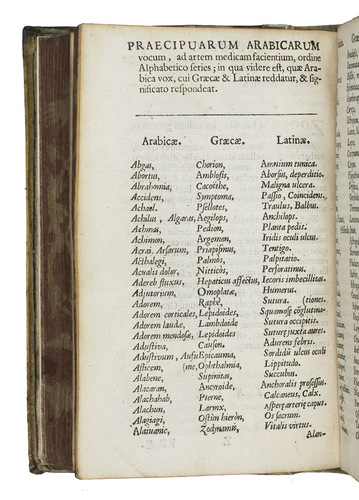 PRAECIPUARUM ARABICARUM
vocum, ad artem medicam facientium, ordine
Alphabetico series; in qua videre est, quæ Ara-
bica vox, cui Græcæ & Latinæ reddatur, & sig-
nificato respondeat.
Arabicæ. Græcæ. Latinæ.
Abgas, Chorion, Amnium tunica.
Abortus, Amblosis, Aborsus, deperditio.
Abrahimia, Cacoëthe, Maligna ulcera.
Accidens, Symptoma, Passio, Coincidens.
Achael. Psellotes, Traulus, Balbus.
Achilus, Algaras, Aegilops, Anchilops.
Achmas, Pedion, Planta pedis.
Achimon, Argemon, Iridis oculi ulcus.
Acrai. Arsarum, Priapismus, Tentigo.
Acthalegi, Palmos, Palpitatio.
Acualis dolor, Nitticòs, Perforatinus.
Adereb fluxus, Hepaticus affectus, Iecoris imbecillitas.
Adjutorium, Omoplatæ, Humerus.
Adorem, Raphè, Sutura. (tiones.
Adorem corticales, Lepidoides, Squamosæ cōglutina-
Adorem lauda, Lambdoide Sutura occipitis.
Adorem mendosæ, Lepidoides Suturæ juxta aures.
Adustiva, Causon, Adurens febris.
Adustivum, Epicauma, Sordidū ulcus oculi
Asticem, Ophthalmia, Lippitudo.
Alabene, Supinitas, Succubus.
Alacaran, Ancyroide, Anchoralis processus.
Alachahab, Pterne, Calcaneus, Calx.
Alachum, Larynx, Asperæ arteriæ caput.
Alagiagi, Ostim hieròn, Os sacrum.
Vitalis virtus.
Alan-